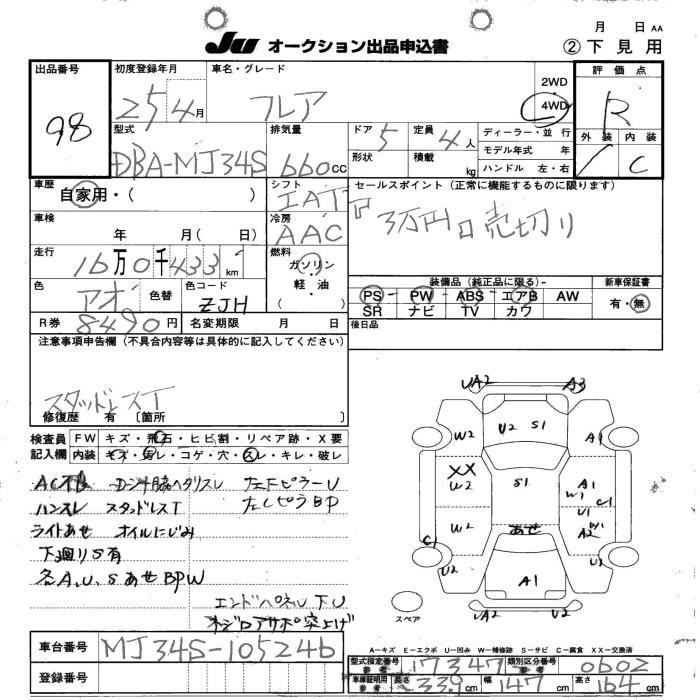 Ju オークション出品申込書
月 日 AA
② 下見用
出品番号
98
初度登録年月
25 4月
車名・グレード
フレア
2WD
4WD
評価点
R
外装 内装
/ C
型式
DBA-MJ34S
排気量
660cc
ドア 5
形状
定員 4人
積載 kg
ディーラー・並行
モデル年式 年
ハンドル 左・右
車歴
自家用・( )
シフト
IAT
セールスポイント (正常に機能するものに限ります)
3万円 売切り
車検
年 月( 日)
冷房
AAC
走行
16万0千433km
燃料
ガソリン
軽油
色
アオ
色替
色コード
ZJH
装備品(純正品に限る)-
PS - PW - ABS - エアB AW
SR ナビ TV カワ
新車保証書
有・無
R券 8490円
名変期限 月 日
後日品
注意事項申告欄 (不具合内容等は具体的に記入してください)
スタッドレスT
修復歴 有 〔箇所 〕
検査員記入欄
FW キズ・飛石・ヒビ割・リペア跡・X要
内装 キズ・汚レ・コゲ・穴・スレ・キレ・破レ
AC不良
ハンスレ スタッドレスT
ライトあせ オイルにじみ
下廻りS有
各A.U.SあせBPW
エンドパネル下U
UA2 A3
W2 U2 S1 A1
XX
U2 S1 A1
W1 C1
U1
W2 あせ W1
A2
C1
U2 A1 U2
UA2 U2
スペア
A-キズ E-エクボ U-凹み W-補修跡 S-サビ C-腐食 XX-交換済
車台番号
MJ34S-105246
登録番号
型式指定番号 参考 17347
類別区分番号 参考 0602
車庫証明用 参考 長さ 339cm 幅 147cm 高さ 164cm